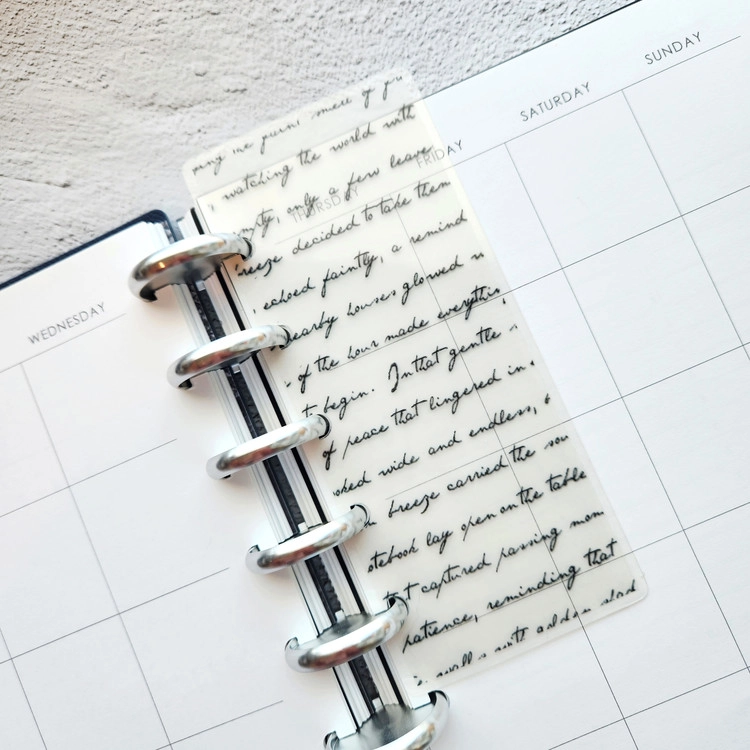 WEDNESDAY
THURSDAY
FRIDAY
SATURDAY
SUNDAY
smell of
watching the world with
only a few leave
reeze decided to take them
echoed faintly, a remind
nearby houses glowed
of the hour made everythin
begin. In that gentle
of peace that lingered in
oked wide and endless,
breeze carried the sou
otebook lay open on the table
t captured passing mom
patience, reminding that